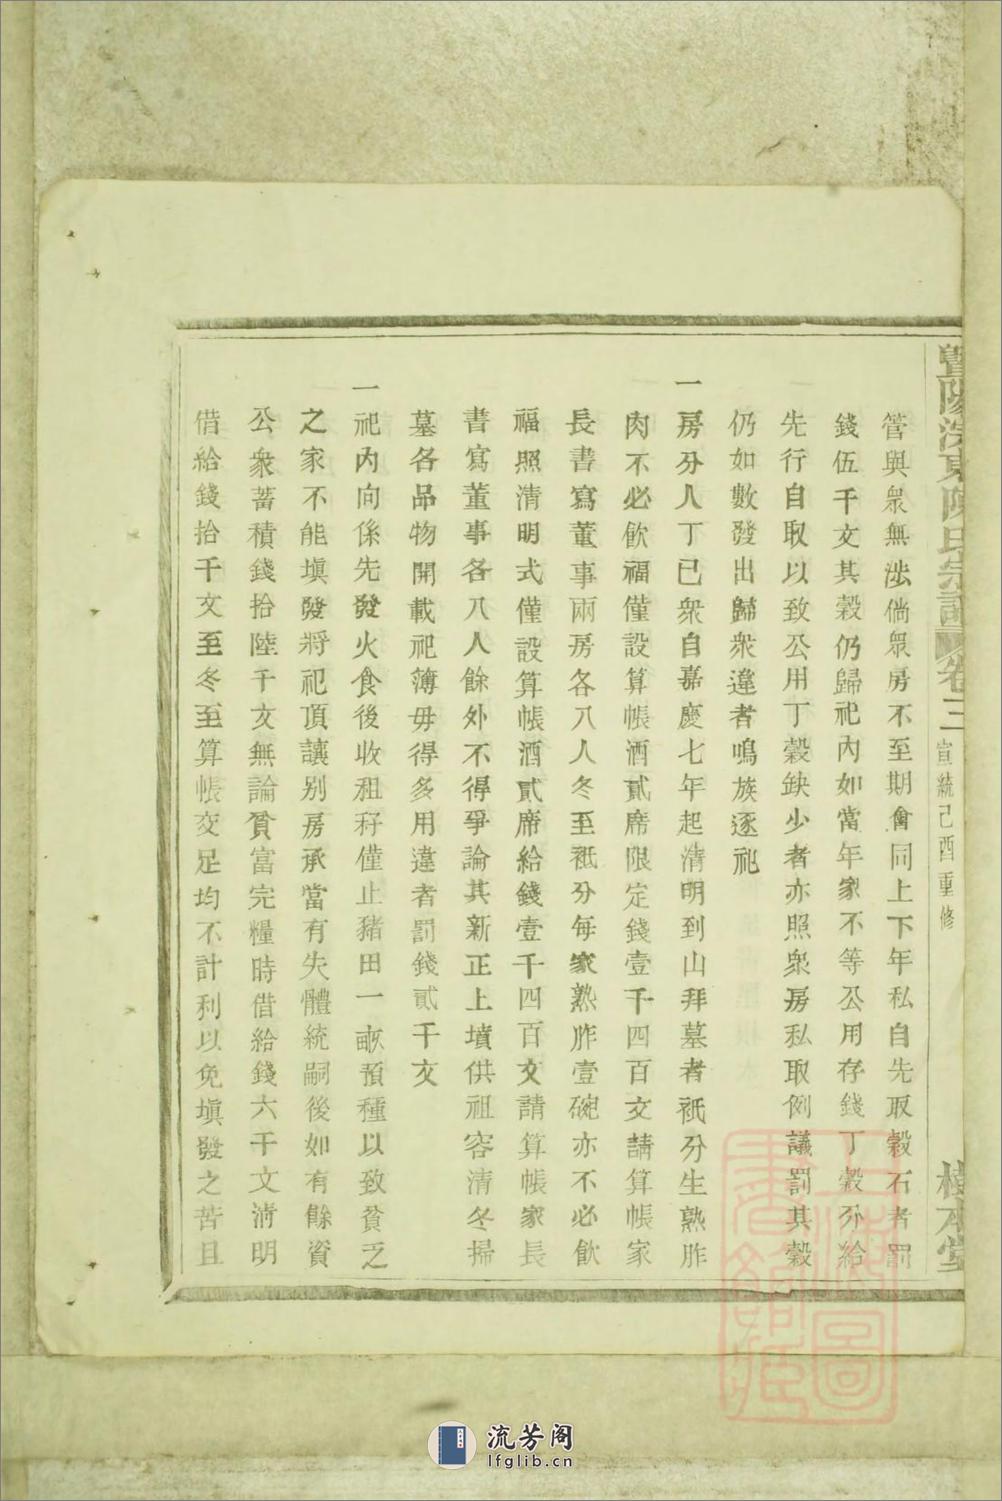 暨陽浣東陳氏宗譜 卷三 宣統己酉重修
管與衆無涉倘衆房不至期會同上下年私自先取穀石者罰
錢伍千文其穀仍歸祀內如當年家不等公用存錢丁穀分給
先行自取以致公用丁穀缺少者亦照衆房私取例議罰其穀
仍如數發出歸衆違者鳴族逐祀
一房分人丁已衆自嘉慶七年起清明到山拜墓者祇分生熟胙
肉不必飲福僅設算帳酒貳席限定錢壹千四百文請算帳家
長書寫董事兩房各八人冬至祇分每家熟胙壹碗亦不必飲
福照清明式僅設算帳酒貳席給錢壹千四百文請算帳家長
書寫董事各八人餘外不得爭論其新正上墳供祖容清冬掃
墓各品物開載祀薄毋得多用違者罰錢貳千文
一祀內向係先發火食後收租秄僅止豬田一畝預種以致貧乏
之家不能塡發將祀頂讓别房承當有失體統嗣後如有餘資
公衆蓄積錢拾陸千文無論貧富完糧時借給錢六千文淸明
借給錢拾千文至冬至算帳交足均不計利以免塡發之苦且
流芳阁
lfglib.cn